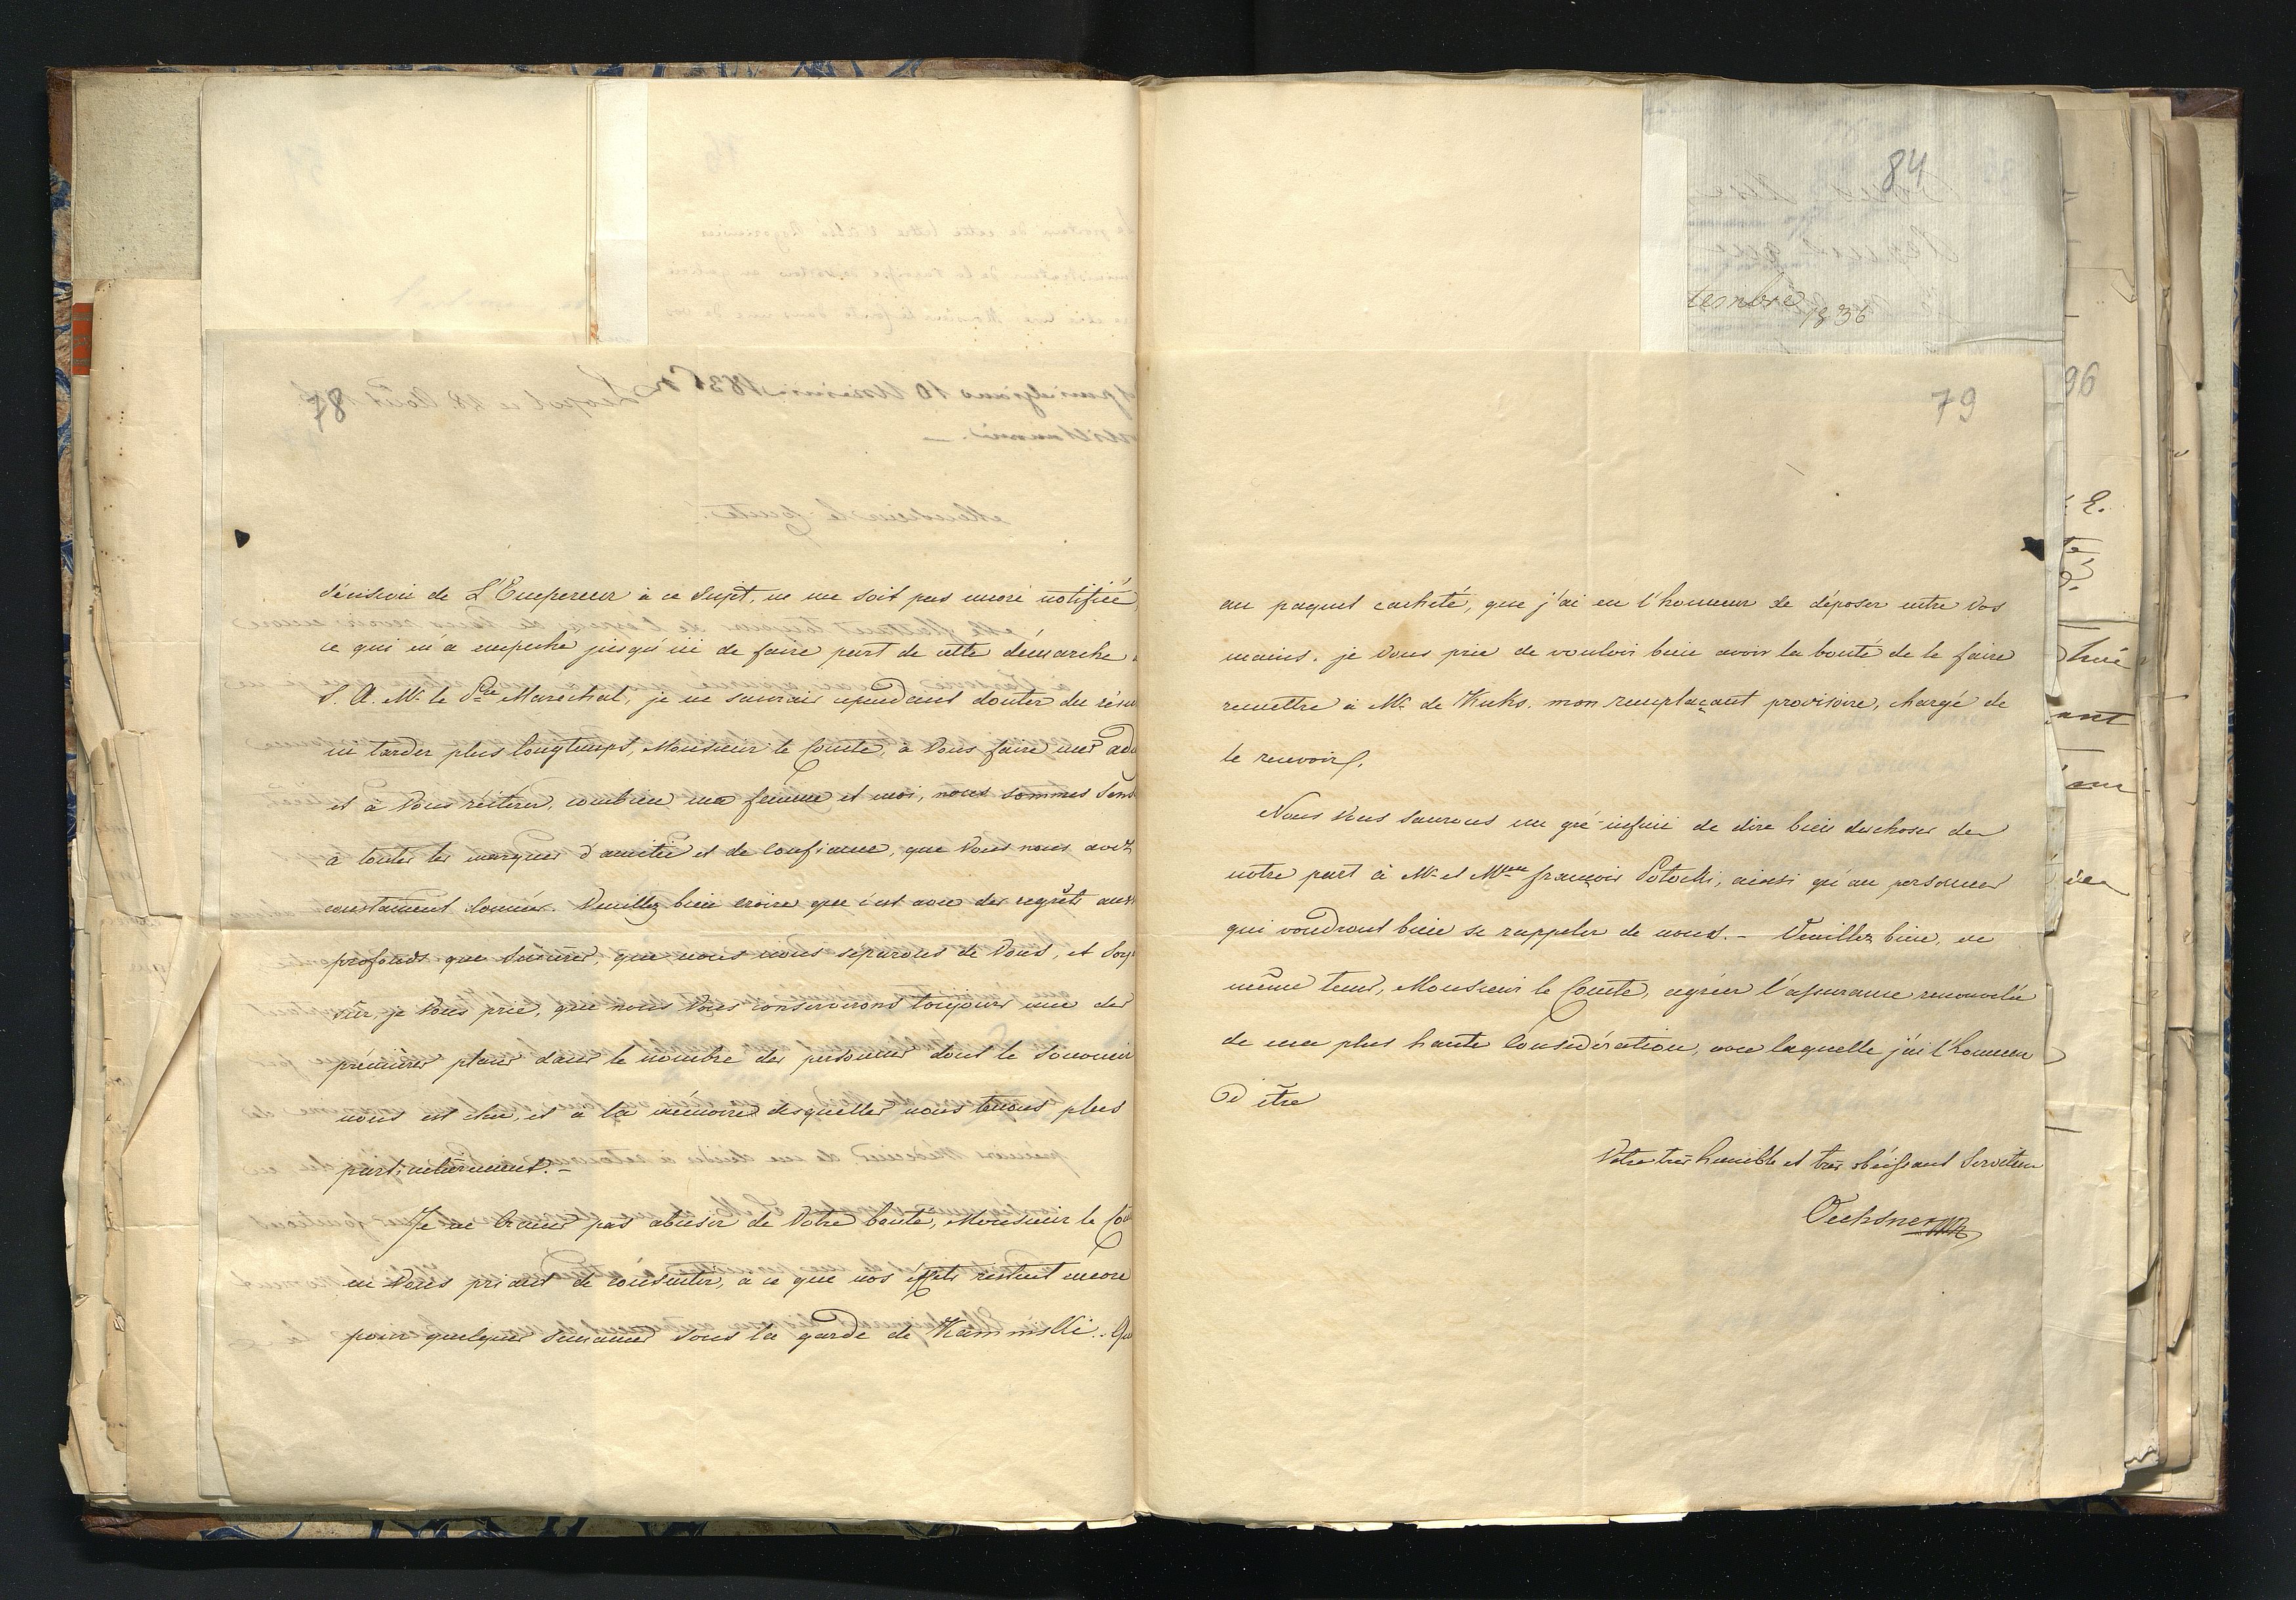 décision de L'Empereur à ce Sujet, ne me soit pas encore notifiée,
ce qui m'a empeché jusqu'ici de faire part de cette démarche
S. A. Mr. le Pce Maréchal, je ne saurais cependant douter du résu
ni tarder plus longtemps, Monsieur le Comte, à Vous faire mes adi
et à Vous réiterer, combien ma femme et moi, nous sommes Sens
à toutes les marques d'amitié et de Confiance, que Vous nous avez
constament données. Veuillez bien croire que c'est avec des regrets auss
profonds que Sincères, que nous nous séparons de Vous, et Soy
sûr, je Vous prie, que nous Vous conserverons toujours une des
prémières places dans le nombre des personnes dont le Souvenir
nous est cher, et à la mémoire desquelles nous tenons plus
particulièrement. –
Je ne Crains pas abuser de Votre bonté, Monsieur le Co
en Vous priant de consentir, à ce que nos éffets restent encore
pour quelques Semaines Sous la garde de Kaminski. Qu
84
tembre
1836
79
au paquet cacheté, que j'ai eu l'honneur de déposer entre Vos
mains, je Vous prie de vouloir bien avoir la bonté de le faire
remettre à Mr. de Kuks, mon remplaçant provisoire, chargé de
le recevoir.
Nous Vous Saurons un gré infini de dire bien des choses de
notre part à Mr. et Mme françois Potocki, ainsi qu'au personnes
qui voudront bien se rappeler de nous. – Veuillez bien, en
même tems, Monsieur le Comte, agréer l'assurance renouvelée
de ma plus haute Considération, avec laquelle j'ai l'honneur
d'être
Votre très humble et très obéissant Serviteur
Oechsner
96